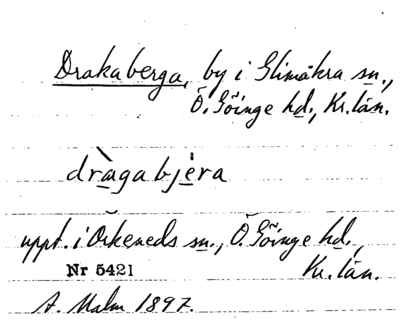 Drakaberga, by i Glimåkra sn.,
Ö. Göinge hd., Kr. län.
dràgabjèra
uppt. i Örkeneds sn., Ö. Göinge hd.,
Kr. län.
Nr 5421
A. Malm 1897.